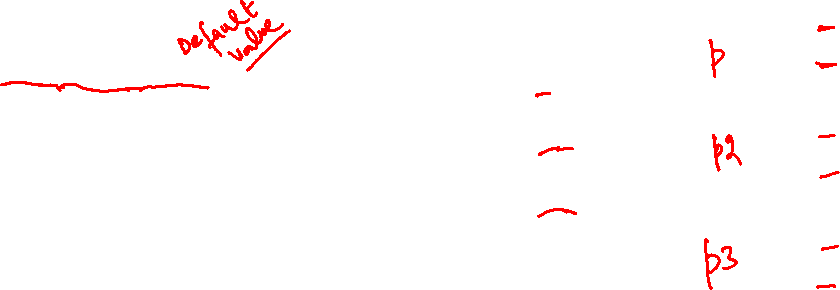 Default
value
p
p2
p3